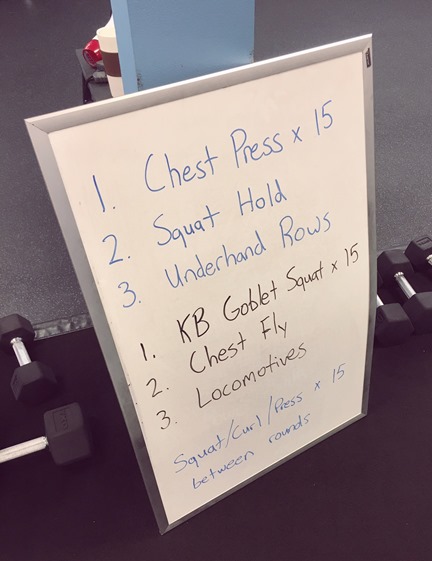 1. Chest Press x 15
2. Squat Hold
3. Underhand Rows
1. KB Goblet Squat x 15
2. Chest Fly
3. Locomotives
Squat/Curl/Press x 15
between rounds